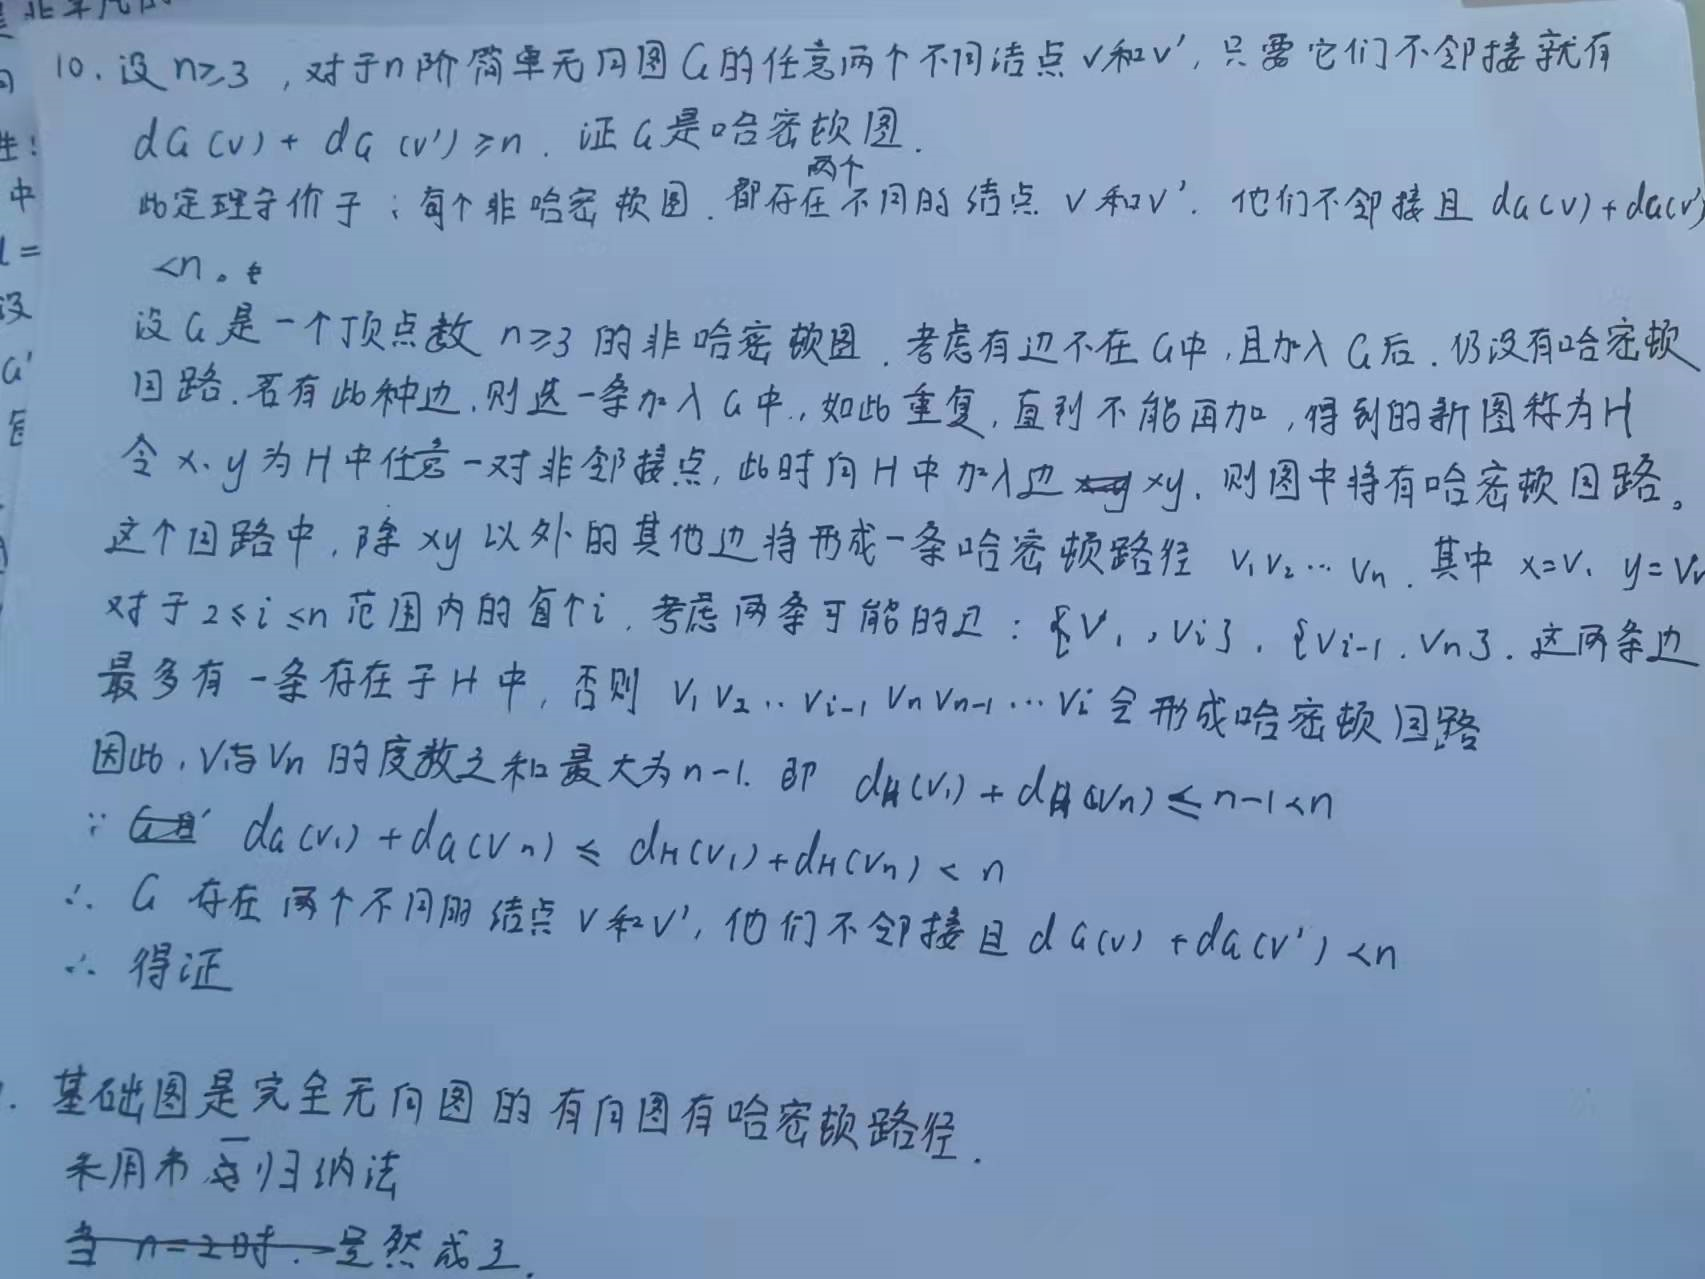 是非平凡的
10. 设 n≥3 , 对于n阶简单无向图G的任意两个不同结点 v和v', 只要它们不邻接就有
dG(v) + dG(v') ≥n. 证G是哈密顿图.
此定理等价于: 每个非哈密顿图. 都存在两个不同的结点 v和v'. 他们不邻接且 dG(v) + dG(v')
<n。
设G是一个顶点数 n≥3 的非哈密顿图. 考虑有边不在G中, 且加入G后. 仍没有哈密顿
回路. 若有此种边, 则选一条加入G中., 如此重复, 直到不能再加, 得到的新图称为H
令 x、y为H中任意一对非邻接点, 此时向H中加入边 xy, 则图中将有哈密顿回路。
这个回路中, 除xy以外的其他边将形成一条哈密顿路径 V₁V₂…Vn. 其中 x=V₁ y=Vn
对于 2≤i≤n 范围内的每个i, 考虑两条可能的边: {V₁, Vi}, {Vi-1, Vn}. 这两条边
最多有一条存在于H中, 否则 V₁V₂‥Vi-1 Vn Vn-1…Vi会形成哈密顿回路
因此, V₁与Vn的度数之和最大为n-1. 即 dH(V₁) + dH(Vn) ≤ n-1<n
∵ dG(V₁) + dG(Vn) ≤ dH(V₁)+dH(Vn) < n
∴ G 存在两个不同的结点 v和v', 他们不邻接且dG(v) + dG(v') <n
∴ 得证
基础图是完全无向图的有向图有哈密顿路径.
采用第二归纳法
当 n=2时. 显然成立.